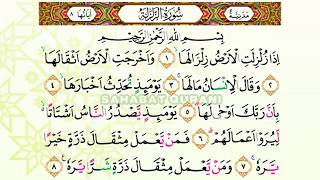 مَدَنِيَّة سُوْرَةُ الزَّلْزَلَةِ اٰيَاتُهَا ٨
بِسْمِ اللّٰهِ الرَّحْمٰنِ الرَّحِيْمِ
اِذَا زُلْزِلَتِ الْاَرْضُ زِلْزَالَهَا ۙ ١ وَاَخْرَجَتِ الْاَرْضُ اَثْقَالَهَا ۙ
٢ وَقَالَ الْاِنْسَانُ مَا لَهَا ۚ ٣ يَوْمَىِٕذٍ تُحَدِّثُ اَخْبَارَهَا ۙ ٤
SAHABAT QURANI
بِاَنَّ رَبَّكَ اَوْحٰى لَهَا ۗ ٥ يَوْمَىِٕذٍ يَّصْدُرُ النَّاسُ اَشْتَاتًا ەۙ
لِّيُرَوْا اَعْمَالَهُمْ ۗ ٦ فَمَنْ يَّعْمَلْ مِثْقَالَ ذَرَّةٍ خَيْرًا
يَّرَهٗ ۚ ٧ وَمَنْ يَّعْمَلْ مِثْقَالَ ذَرَّةٍ شَرًّا يَّرَهٗ ٨